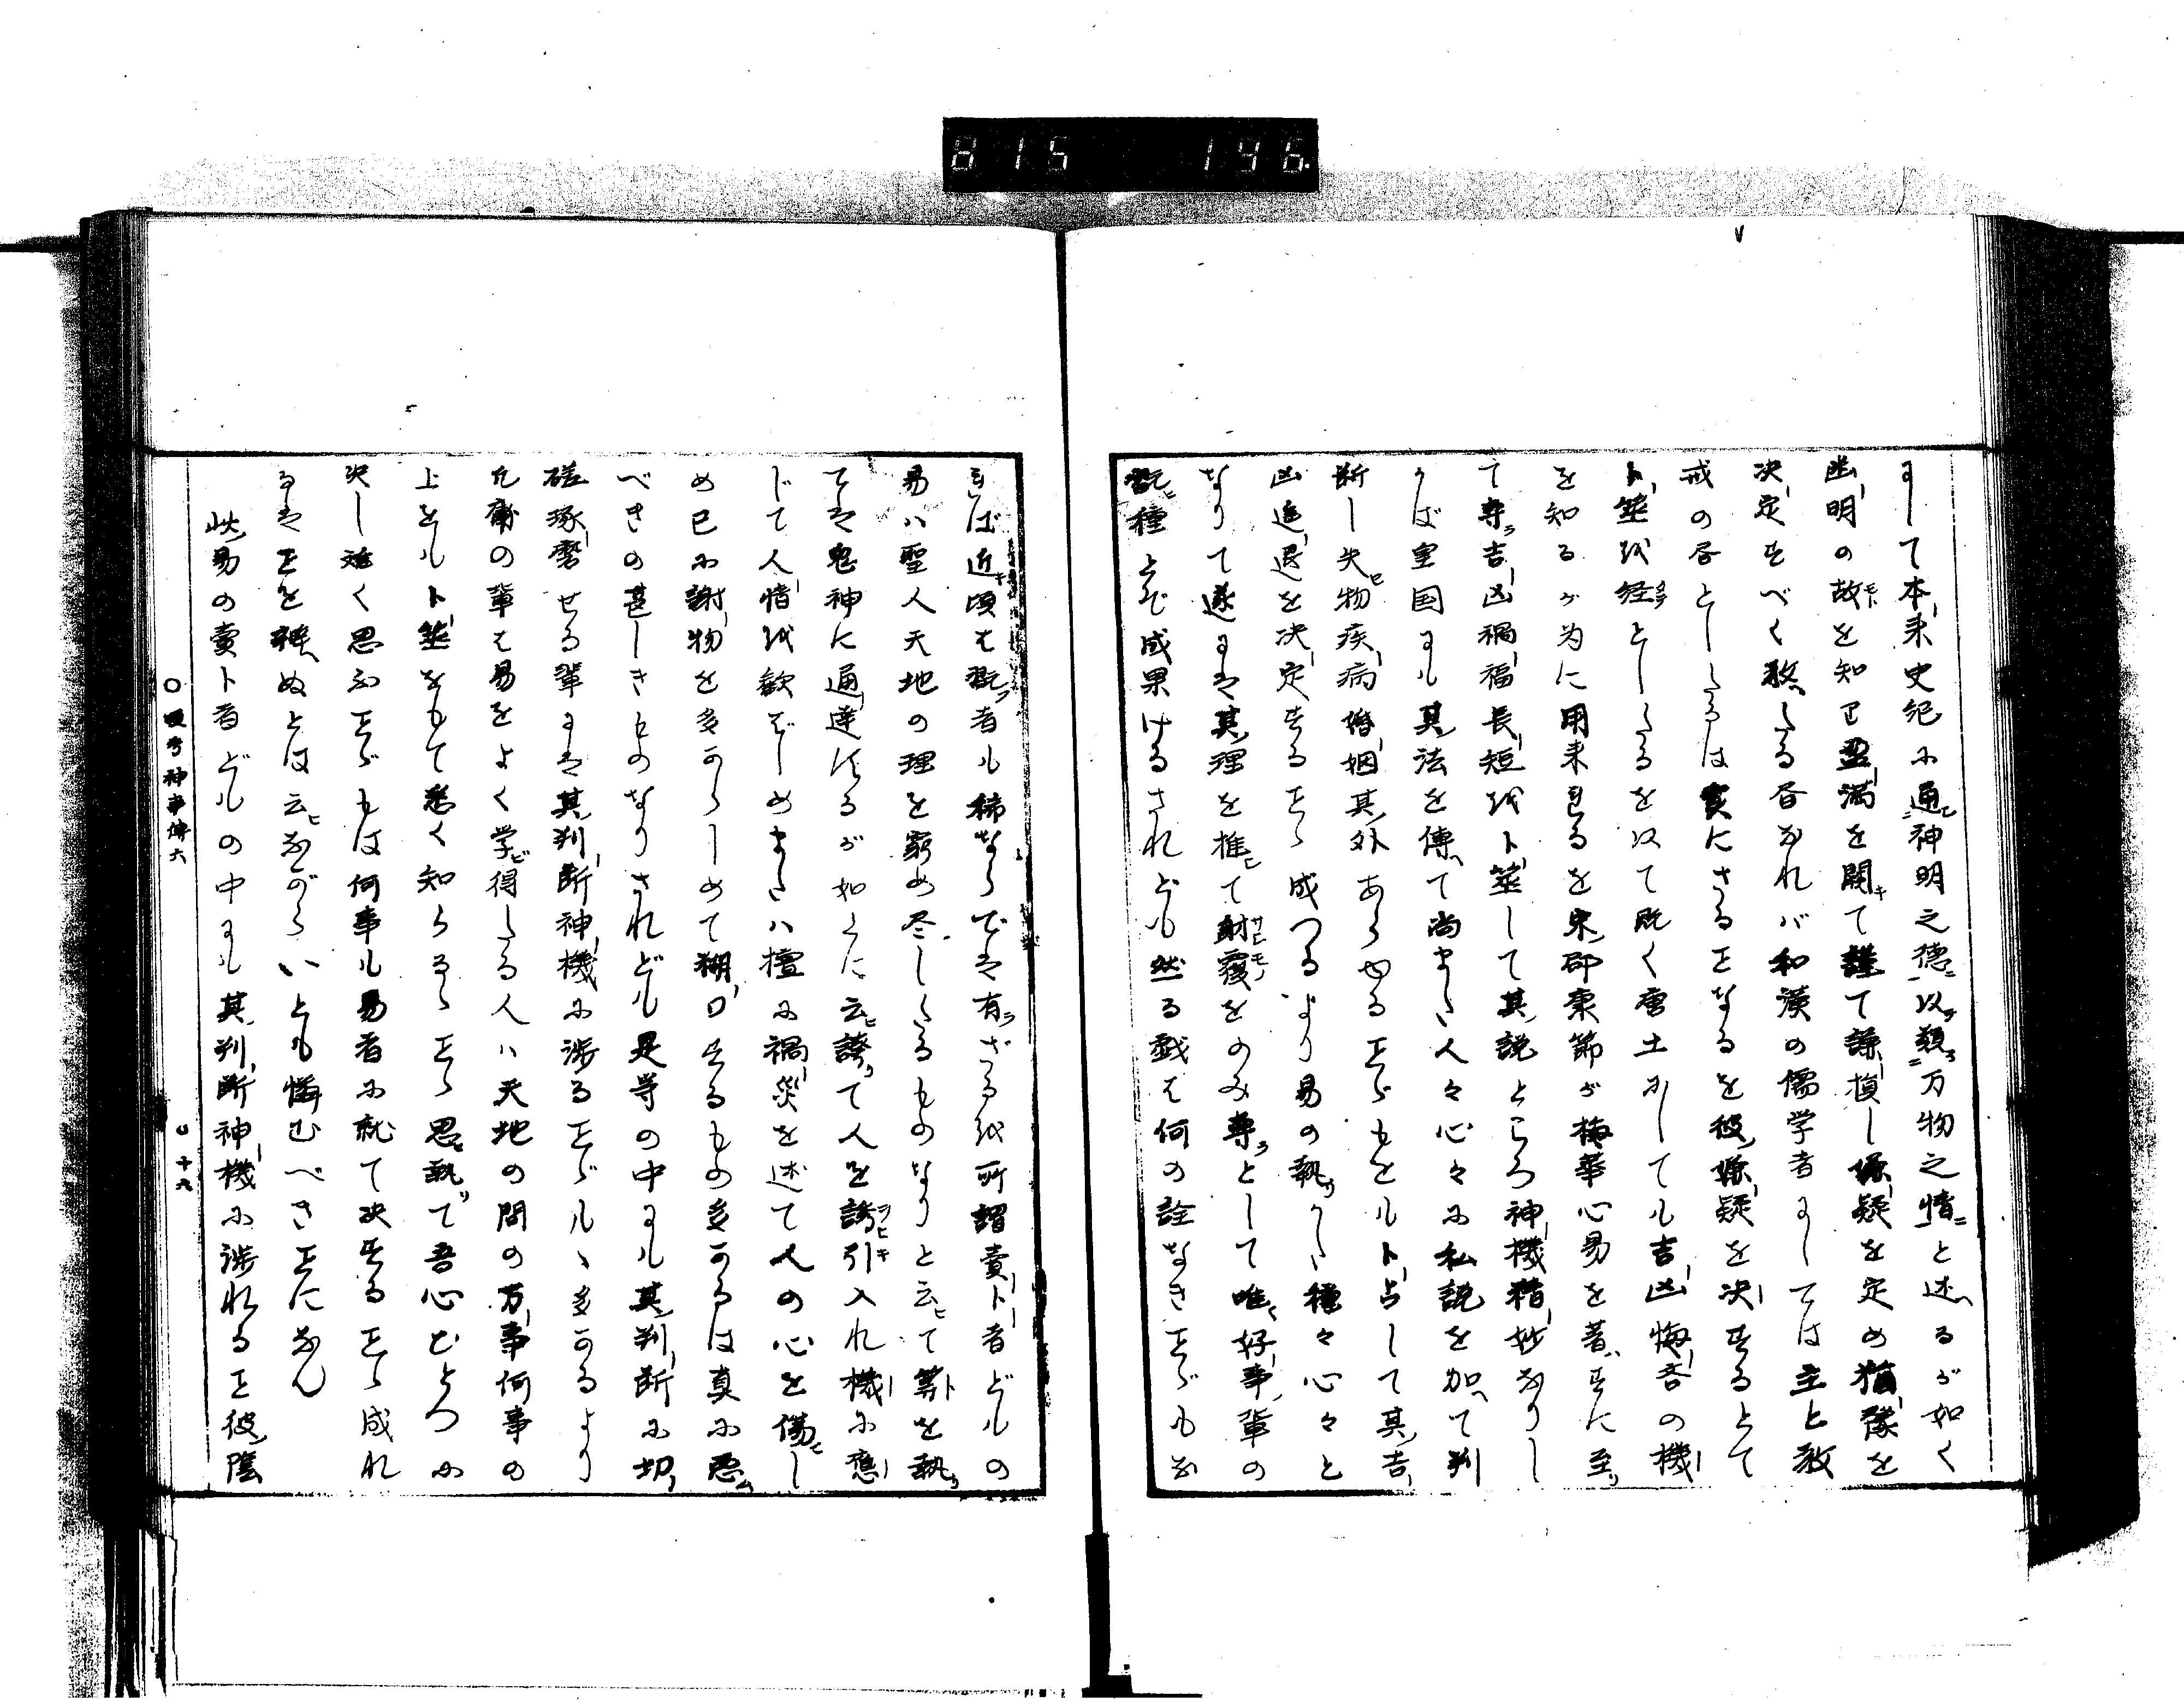 815 196.
して本来史紀に通神明之徳以類万物之情と述るが如く
幽明の故を知て盈満を開て謹て謙損し嫌疑を定め猶豫を
決定すべく教たる書なれバ和漢の儒学者にしては主と教
戒の書としたるは実にさることなるを彼嫌疑を決するとて
卜筮の経としたるを以て既く唐土にしても吉凶悔吝の機
を知るが為に用来れるを宋邵康節が梅華心易を著すに至
て専吉凶禍福長短を卜筮して其説ところ神機精妙なりし
かば皇国にも其法を傳て尚また人々心々に私説を加て判
断し失物疾病婚姻其外あらゆることをも卜占して其吉
凶進退を決定することゝ成つるより易の執かた種々心々と
なりて遂には其理を推て射覆をのみ専として唯好事輩の
翫種とぞ成果けるされども然る戯は何の詮なきことどもな
れば近頃は翫者も稀ならでは有ざるを所謂賣卜者どもの
易ハ聖人天地の理を窮め尽したるものなりと云て筭を執
ては鬼神に通達するが如くに云誇て人を誘引入れ機に應
じて人情を歓ばしめまたハ檀に禍災を述て人の心を傷し
め己に謝物を多からしめて糊口するもの多かるは真に悪
べきの甚しきものなりされども是等の中にも其判断に切
磋琢磨せる輩には其判断神機に渉ることゞも多かるより
凡庸の輩は易をよく学得たる人ハ天地の間の万事何事の
上をも卜筮をもて悉く知らるゝことゝ思執て吾心ひとつに
決し難く思ふことゞもは何事も易者に就て決することゝ成れ
るはことを辨ぬとは云ながらいとも憐むべきことになん
此易の賣卜者どもの中にも其判断神機に渉れること彼陰
神事傳六
十九